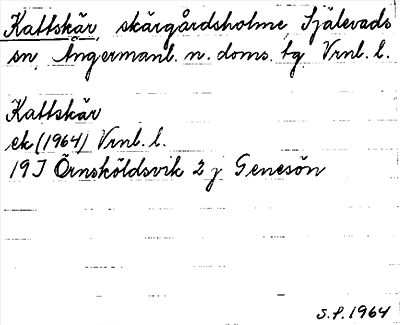 Kattskär, skärgårdsholme, Själevads
sn, Ångermanl. n. doms. tg, Vrnl. l.
Kattskär
ek (1964) Vrnl. l.
19 J Örnsköldsvik 2 j Genesön
S.P. 1964